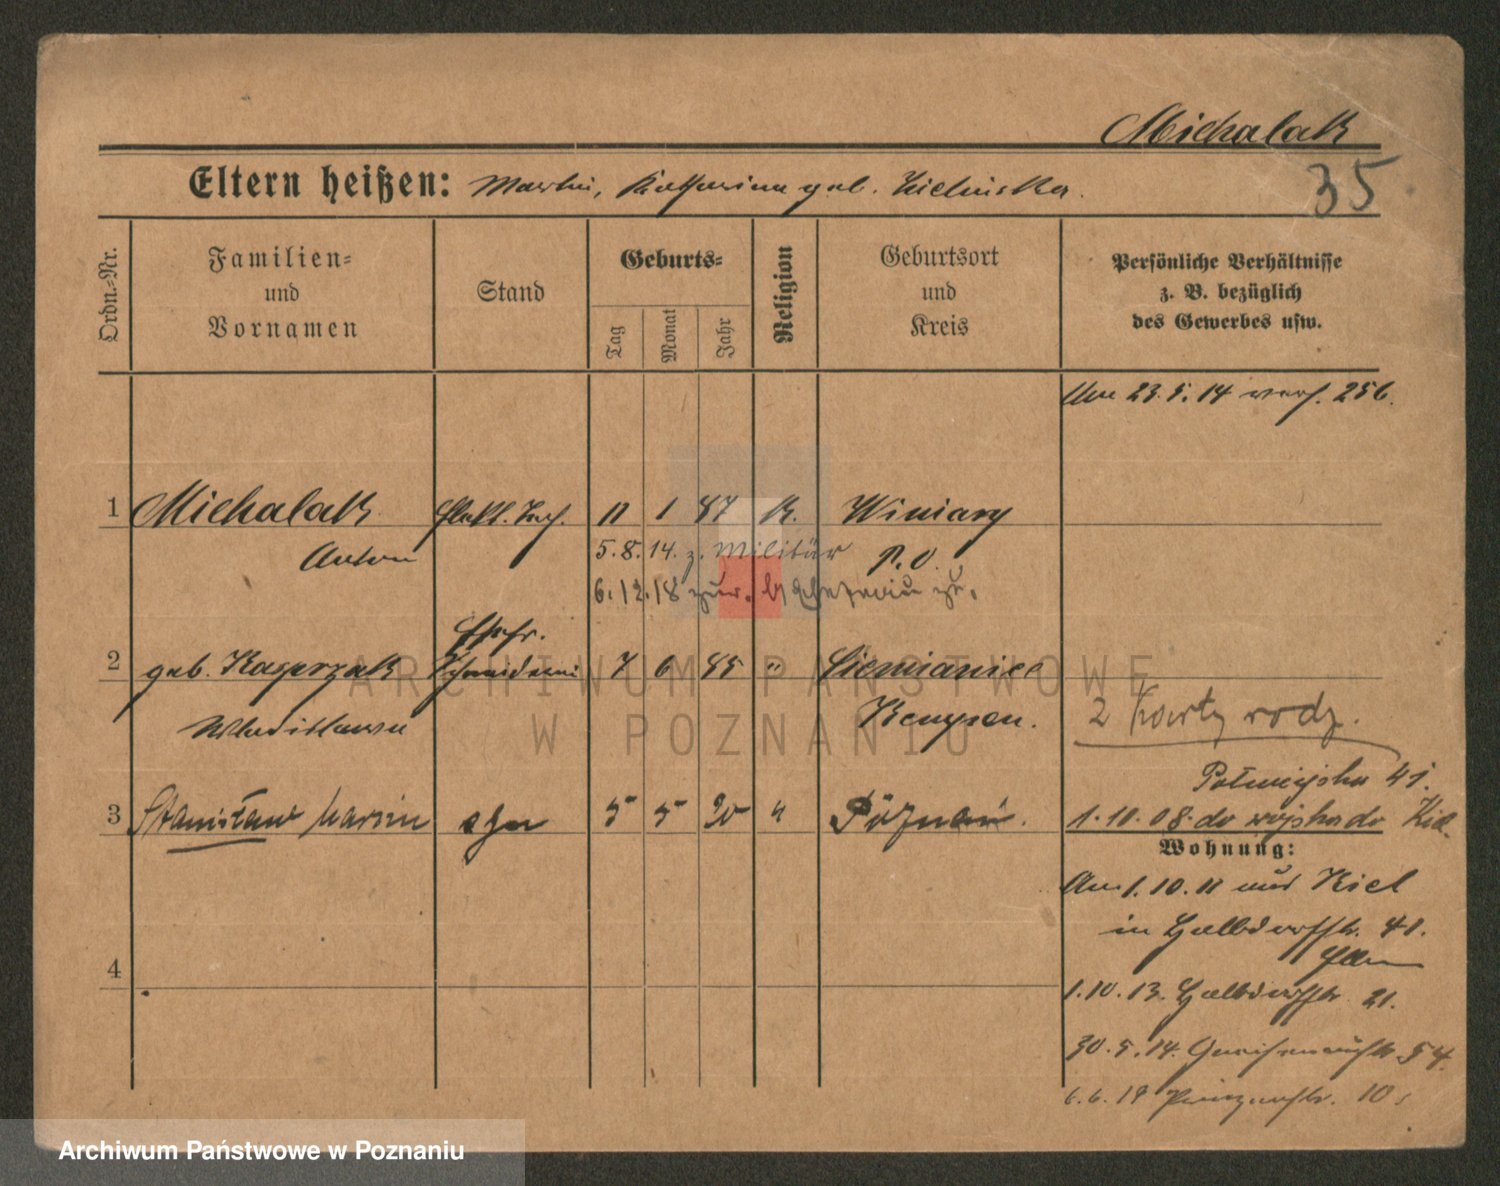 Michalak
35
Eltern heißen: Martin, Katharina geb. Zielinska.
Ordn.-Nr.
Familien- und Vornamen
Stand
Geburts-
Tag
Monat
Jahr
Religion
Geburtsort und Kreis
Persönliche Verhältnisse
z. B. bezüglich
des Gewerbes usw.
Am 23.5.14 verh. 256.
1 Michalak 11 1 87 K. Winiary
Anton P. O.
5.8.14. z. Militär
6.12.18 zur.
Ehefr.
2 geb. Kasprzak Schneiderin 7 6 85 " Siemianice
Wladislawa Kempen.
2 Karty rodz.
3 Stanisław Marcin syn 5 5 20 " Poznań.
41.
1.10.08. do wojska do Kiel.
Wohnung:
Am 1.10.11 aus Kiel
in Halbdorfstr. 41.
Eltern
4
1.10.13. Halbdorfstr. 21.
30.5.14. Gneisenaustr. 54.
6.6.19 Prinzenstr. 10
ARCHIWUM PAŃSTWOWE
W POZNANIU
Archiwum Państwowe w Poznaniu